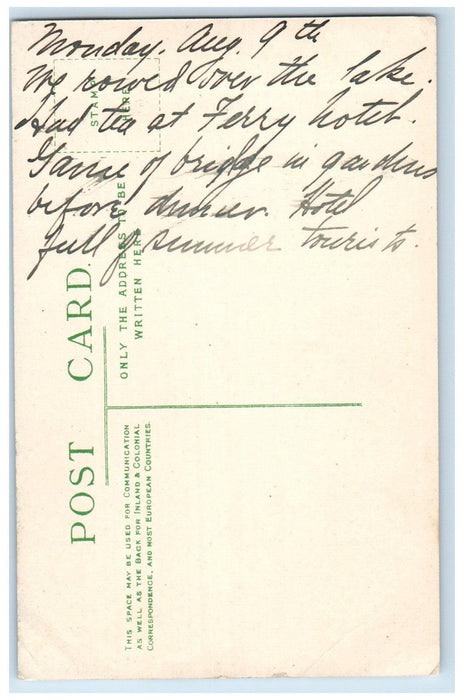 Monday, Aug. 9th
We rowed over the lake.
Had tea at Ferry hotel.
Game of bridge in gardens
before dinner. Hotel
full of summer tourists.
STAMP
HERE
POST CARD.
ONLY THE ADDRESS TO BE
WRITTEN HERE
THIS SPACE MAY BE USED FOR COMMUNICATION
AS WELL AS THE BACK FOR INLAND & COLONIAL
CORRESPONDENCE, AND MOST EUROPEAN COUNTRIES.